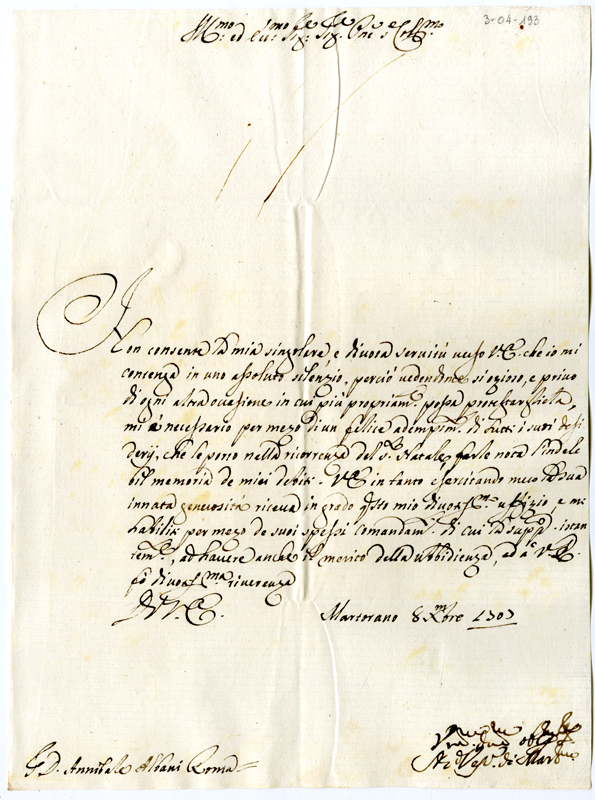 3-04-193
Ill.mo ed Ecc.mo Sig.r Sig.r P.ne e Col.mo
Non consente la mia singolare, e divota servitù verso V.E. che io mi
contenga in uno assoluto silenzio, perciò vedendomi sì ozioso, e privo
di ogni altra occasione in cui più propriam.te possa protestargliela,
mi è necessario per mezo di un felice adempim.to di tutti i suoi desi
derij, che le porto nella ricorrenza del S. Natale, farle nota l'indele
bil memoria de miei debiti. V.E. in tanto esercitando meco la sua
innata generosità riceva in grado q.sto mio divotiss.mo uffizio, e mi
habiliti per mezo de suoi spessi comandam.ti di cui la supp.co istan
tem.te, ad havere anche il merito della ubbidienza, ed a V.E.
fò divotiss.ma riverenza
D. V. E.
Martorano 8 Xbre 1707
oblig.
Il Vesc.o di Mart.no
S. D. Annibale Albani Roma